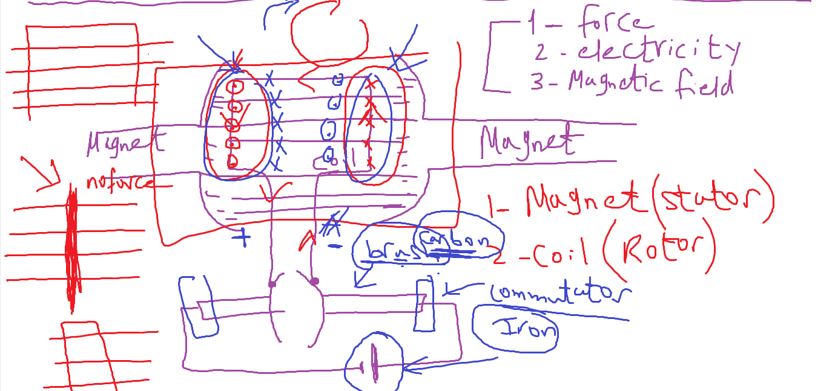 1- force
2- electricity
3- Magnetic field
Magnet
Magnet
noforce
coil
+
-
1- Magnet (stator)
2-Coil (Rotor)
brush
Carbon
Commutator
Iron